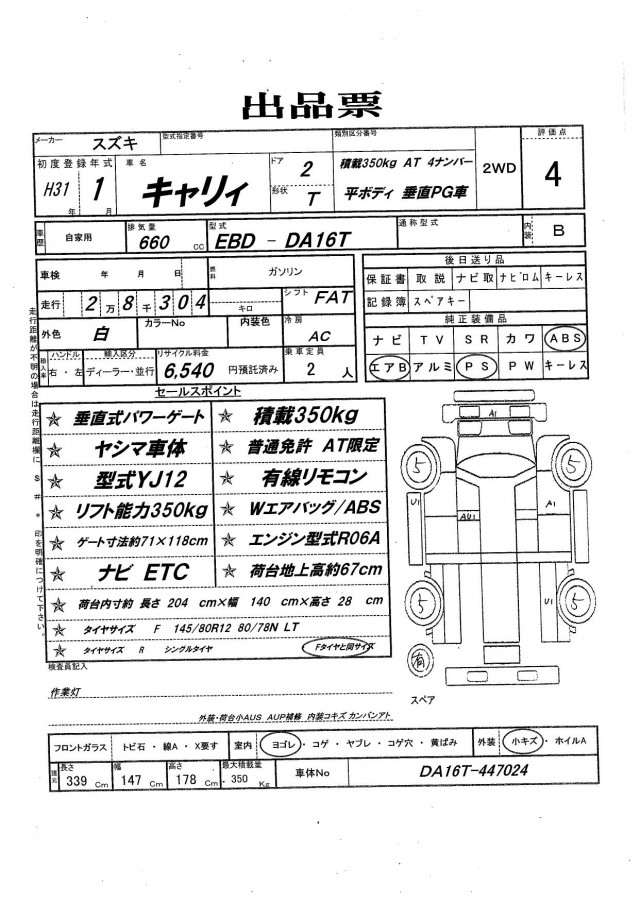 出品票
メーカー スズキ 型式指定番号 類別区分番号 評価点
初度登録年式 車名 ドア 2 積載350kg AT 4ナンバー 2WD 4
H31 年 1 月 キャリィ 形状 T 平ボディ 垂直PG車
車歴 自家用 排気量 660 CC 型式 EBD - DA16T 通称型式 内装 B
車検 年 月 日 燃料 ガソリン 後日送り品
保証書 取説 ナビ取 ナビロム キーレス
走行 2 万 8 千 304 キロ シフト FAT 記録簿 スペアキー
外色 白 カラーNo 内装色 冷房 AC 純正装備品
ナビ TV SR カワ ABS
輸入車 ハンドル 右・左 輸入区分 ディーラー・並行 リサイクル料金 6,540 円預託済み 乗車定員 2 人 エアB アルミ PS PW キーレス
走行距離が不明の場合は走行距離欄に $ # * 印を明確につけて下さい。
セールスポイント
☆ 垂直式パワーゲート ☆ 積載350kg
☆ ヤシマ車体 ☆ 普通免許 AT限定
☆ 型式YJ12 ☆ 有線リモコン
☆ リフト能力350kg ☆ Wエアバッグ/ABS
☆ ゲート寸法約71×118cm ☆ エンジン型式R06A
☆ ナビ ETC ☆ 荷台地上高約67cm
☆ 荷台内寸約 長さ 204 cm×幅 140 cm×高さ 28 cm
☆ タイヤサイズ F 145/80R12 80/78N LT
☆ タイヤサイズ R シングルタイヤ Fタイヤと同サイズ
A1
5 5
U1 AU1 A1
5 U1 5
有
スペア
検査員記入
作業灯
外装・荷台小AUS AUP補修 内装コキズ カンバンアト
フロントガラス トビ石・線A・X要す 室内 ヨゴレ・コゲ・ヤブレ・コゲ穴・黄ばみ 外装 小キズ・ホイルA
諸元 長さ 339 Cm 幅 147 Cm 高さ 178 Cm 最大積載量 350 Kg 車体No DA16T-447024